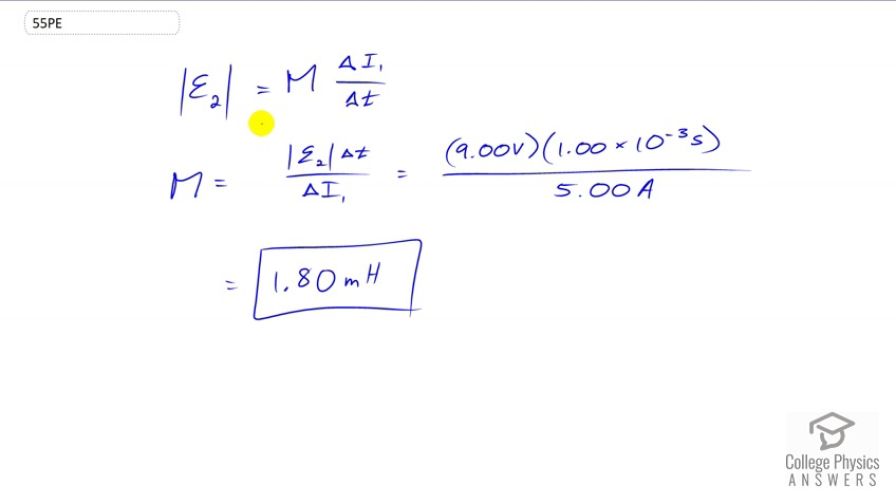 55PE
|ε₂| = M ΔI₁/Δt
M = |ε₂|Δt/ΔI₁ = (9.00V)(1.00 × 10⁻³s)/5.00A
= 1.80mH
College Physics
ANSWERS